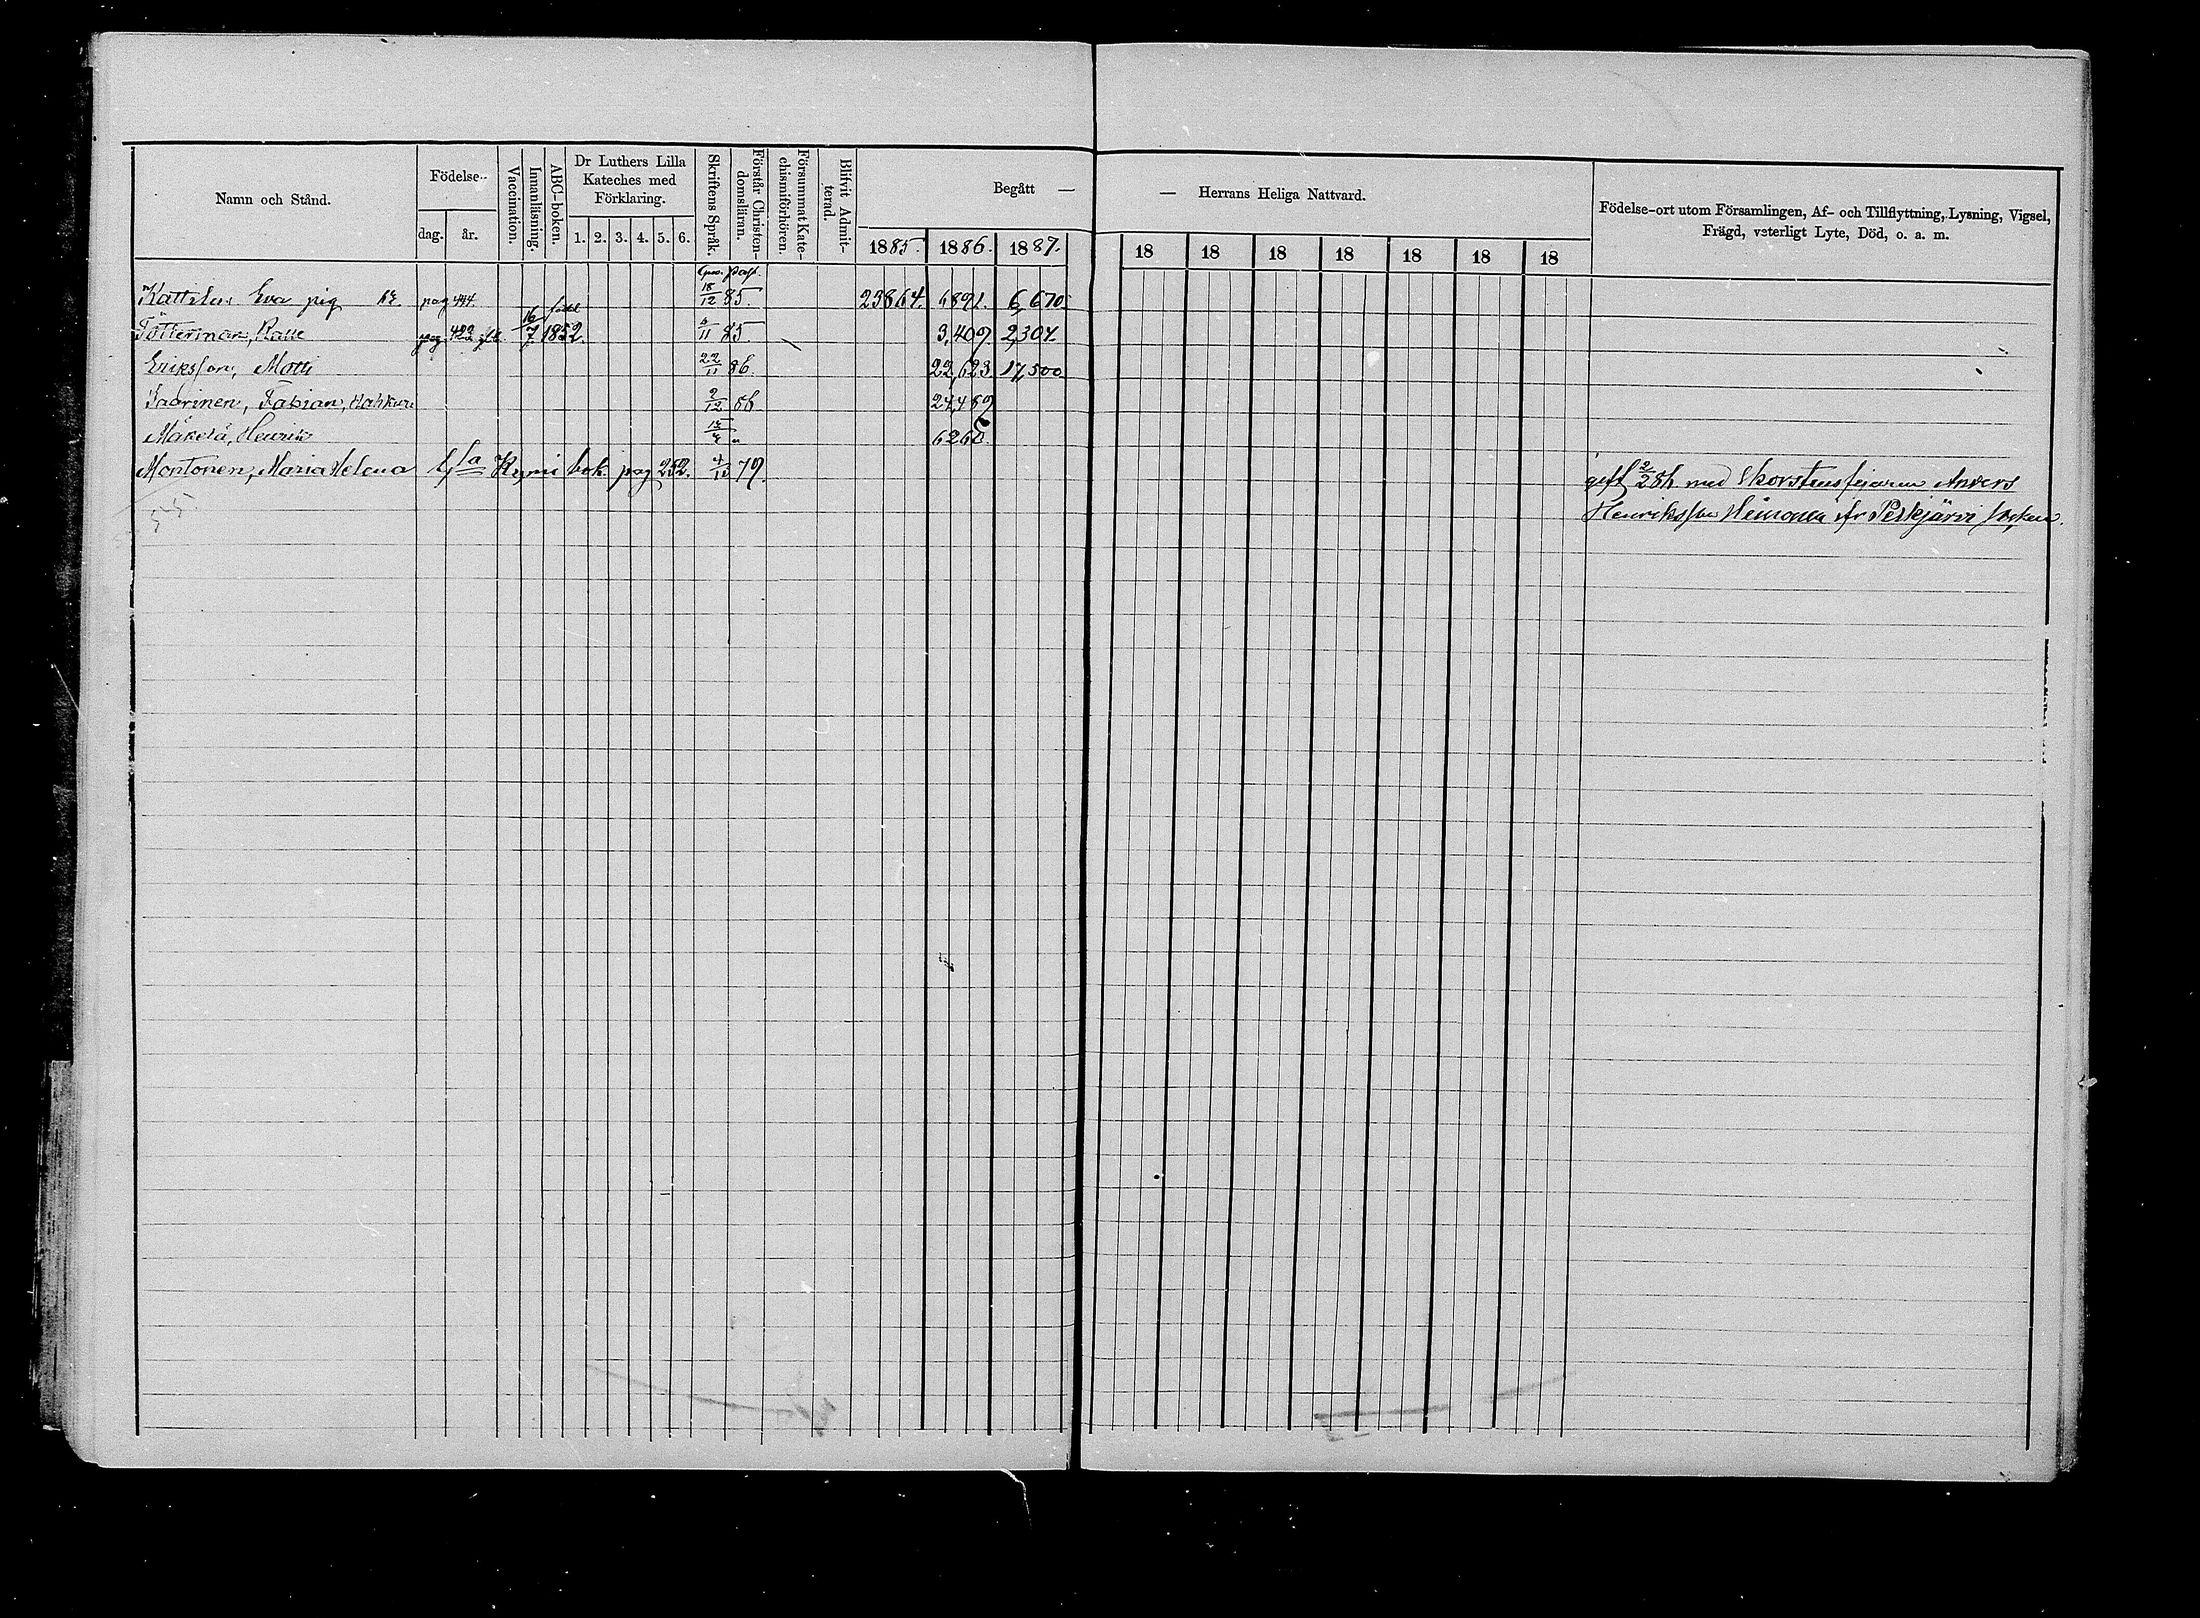 Namn och Stånd.
Födelse-
dag.
år.
Vaccination.
Innanläsning.
ABC-boken.
Dr Luthers Lilla
Kateches med
Förklaring.
1. 2. 3. 4. 5. 6.
Skriftens Språk.
Förstår Christen-
domsläran.
Försummat Kate-
chismiförhören.
Blifvit Admit-
terad.
Begått —
1885. 1886. 1887.
— Herrans Heliga Nattvard.
18 18 18 18 18 18 18
Födelse-ort utom Församlingen, Af- och Tillflyttning, Lysning, Vigsel,
Frägd, vsterligt Lyte, Död, o. a. m.
Eva pig pag 444 18/12 85. 23864. 6892. 6,670
född
Kalle pag 423 16/7 1852. 4/11 85 3,409 2,304.
Eriksson, Matti 22/11 86. 22,623 17,500
Saarinen, Fabian, 2/12 86 24,489
Mäkelä, Henrik
Montonen, Maria Helena Gla Kymi bok. pag 252. 4/10 79.
gift 2/2 84 med Skorstensfejaren Anders
Henriksson Heinonen ifr Perkjärvi socken.
55.